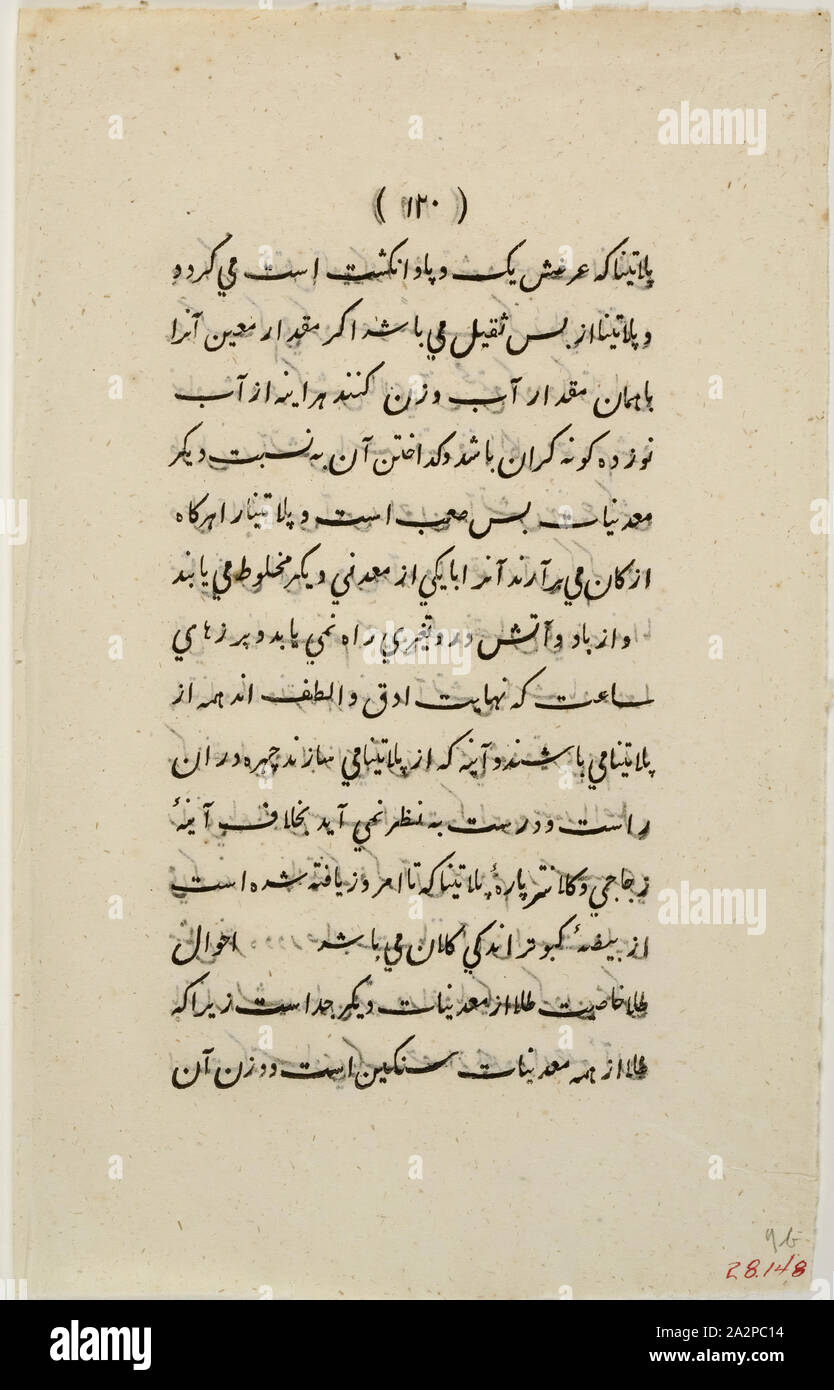 ( ۱۲۰ )
پلاتینا که عرضش یک و پاو انکشت است مي کرده
و پلاتینا از بس ثقیل مي باشد اکر مقدار معین آنرا
باهمان مقدار آب وزن کنند هراینه از آب
نوزده کونه کران باشد و کداختن آن به نسبت دیکر
معدنیات بس صعب است و پلاتینا را هرکاه
از کان مي برآرند آنرا بایکي از معدني دیکر مخلوط مي یابند
و از باد و آتش در و تغیري راه نمي یابد و پرزهاي
ساعت که نهایت ادق و الطف اند همه از
پلاتینا مي باشند و آینه که از پلاتینا مي سازند چهره در ان
راست و درست به نظر نمي آید بخلاف آینۀ
زجاجي و کلانتر پارۀ پلاتینا که تا امروز یافته شده است
از بیضۀ کبوتر اندکي کلان مي باشد احوال
طلا خاصیت طلا از معدنیات دیکر جداست زیرا که
طلا از همه معدنیات سنکین است و وزن آن
9b
28.148
a alamy
alamy
Image ID: A22PC14
www.alamy.com